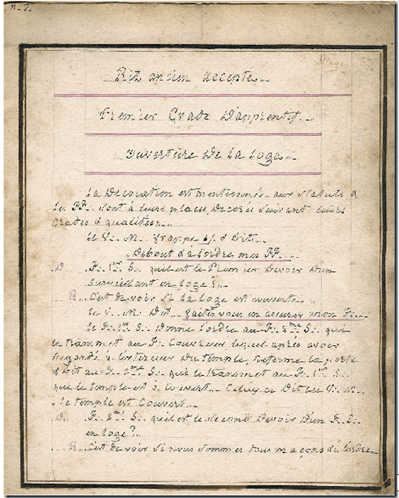 n. 7.
Rit ancien accepté..
Premier Grade D'apprentif..
Ouverture De la Loge..
La Décoration est mentionnée aux statuts &
les FF.. sont à leurs places, Decorés suivant leurs
grades & qualités..
le V.. M.. frappe 1/. & Dit..
Debout & à l'ordre mes FF..
D. F.. 1er S.. quel est le Premier Devoir D'un
surveillant en loge?
R.. C'est de voir si la loge est couverte..
le V.. M.. Dit.. faites vous en assurer mon F..
le F.. 1er S.. Donne l'ordre au F.. 2me S.. qui
le transmet au F.. Couvreur lequel après avoir
regardé à l'exterieur Du temple, referme la porte
& Dit au F.. 2me S.. qui le transmet au F.. 1er S..
que le temple est à couvert.. Celuy cy Dit au V.. M..
le temple est Couvert..
D.. F.. 2me S.. quel est le second Devoir D'un F.. S..
en loge?
R.. C'est de voir si nous sommes tous maçons & à l'ordre..